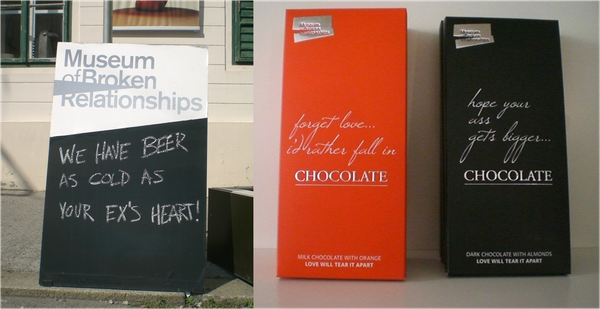 Museum
of Broken
Relationships
WE HAVE BEER
AS COLD AS
YOUR EX'S HEART!
Museum
of Broken
Relationships
forget love...
i'd rather fall in
CHOCOLATE
MILK CHOCOLATE WITH ORANGE
LOVE WILL TEAR IT APART
Museum
of Broken
Relationships
hope your
ass
gets bigger...
CHOCOLATE
DARK CHOCOLATE WITH ALMONDS
LOVE WILL TEAR IT APART